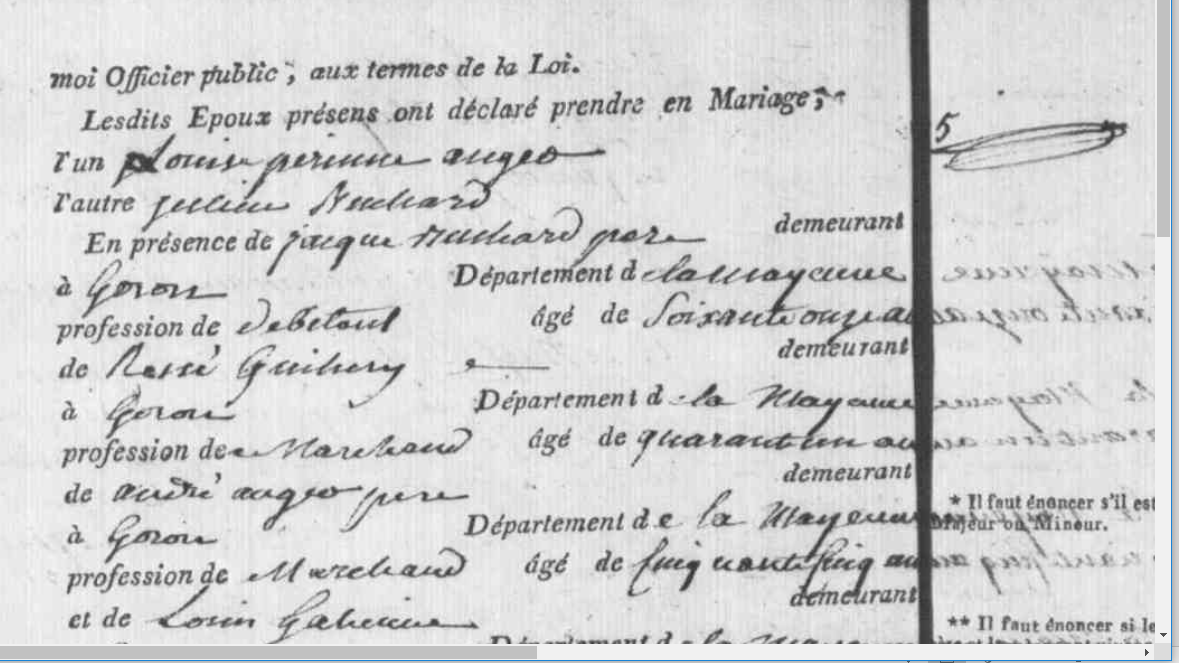 moi Officier public, aux termes de la Loi.
Lesdits Epoux présens ont déclaré prendre en Mariage;
l'un Louise perinne angeo
l'autre julien
En présence de jacque pere demeurant
à Goron Département de la mayenne
profession de debitant âgé de Soixante onze ans
de René Guihery demeurant
à Goron Département de la Mayenne
profession de Marchand âgé de quarante un ans
de andré angeo pere demeurant
à Goron Département de la Mayenne
profession de Marchand âgé de cinquante cinq ans
et de Louis demeurant
Département de la Mayenne
5
* Il faut énoncer s'il est
Majeur ou Mineur.
** Il faut énoncer si le